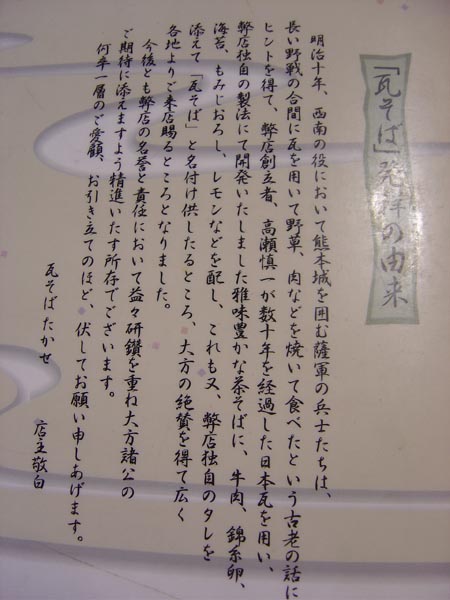 「瓦そば」発祥の由来
明治十年、西南の役において熊本城を囲む薩軍の兵士たちは、
長い野戦の合間に瓦を用いて野草、肉などを焼いて食べたという古老の話に
ヒントを得て、弊店創立者、高瀬慎一が数十年を経過した日本瓦を用い、
弊店独自の製法にて開発いたしました雅味豊かな茶そばに、牛肉、錦糸卵、
海苔、もみじおろし、レモンなどを配し、これも又、弊店独自のタレを
添えて「瓦そば」と名付け供したるところ、大方の絶賛を得て広く
各地よりご来店賜るところとなりました。
今後とも弊店の名誉と責任において益々研鑽を重ね大方諸公の
ご期待に添えますよう精進いたす所存でございます。
何卒一層のご愛顧、お引き立てのほど、伏してお願い申しあげます。
瓦そばたかせ
店主敬白